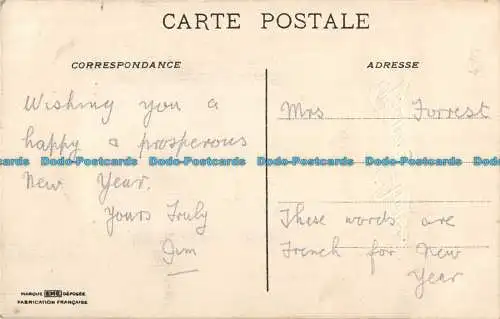 CARTE POSTALE
CORRESPONDANCE
Wishing you a
happy & prosperous
New Year.
Yours Truly
Jim
ADRESSE
Mrs Forrest
These words are
French for New
Year
Dodo-Postcards Dodo-Postcards Dodo-Postcards Dodo-Postcards Dodo-Postcards
MARQUE EMB DÉPOSÉE
FABRICATION FRANÇAISE